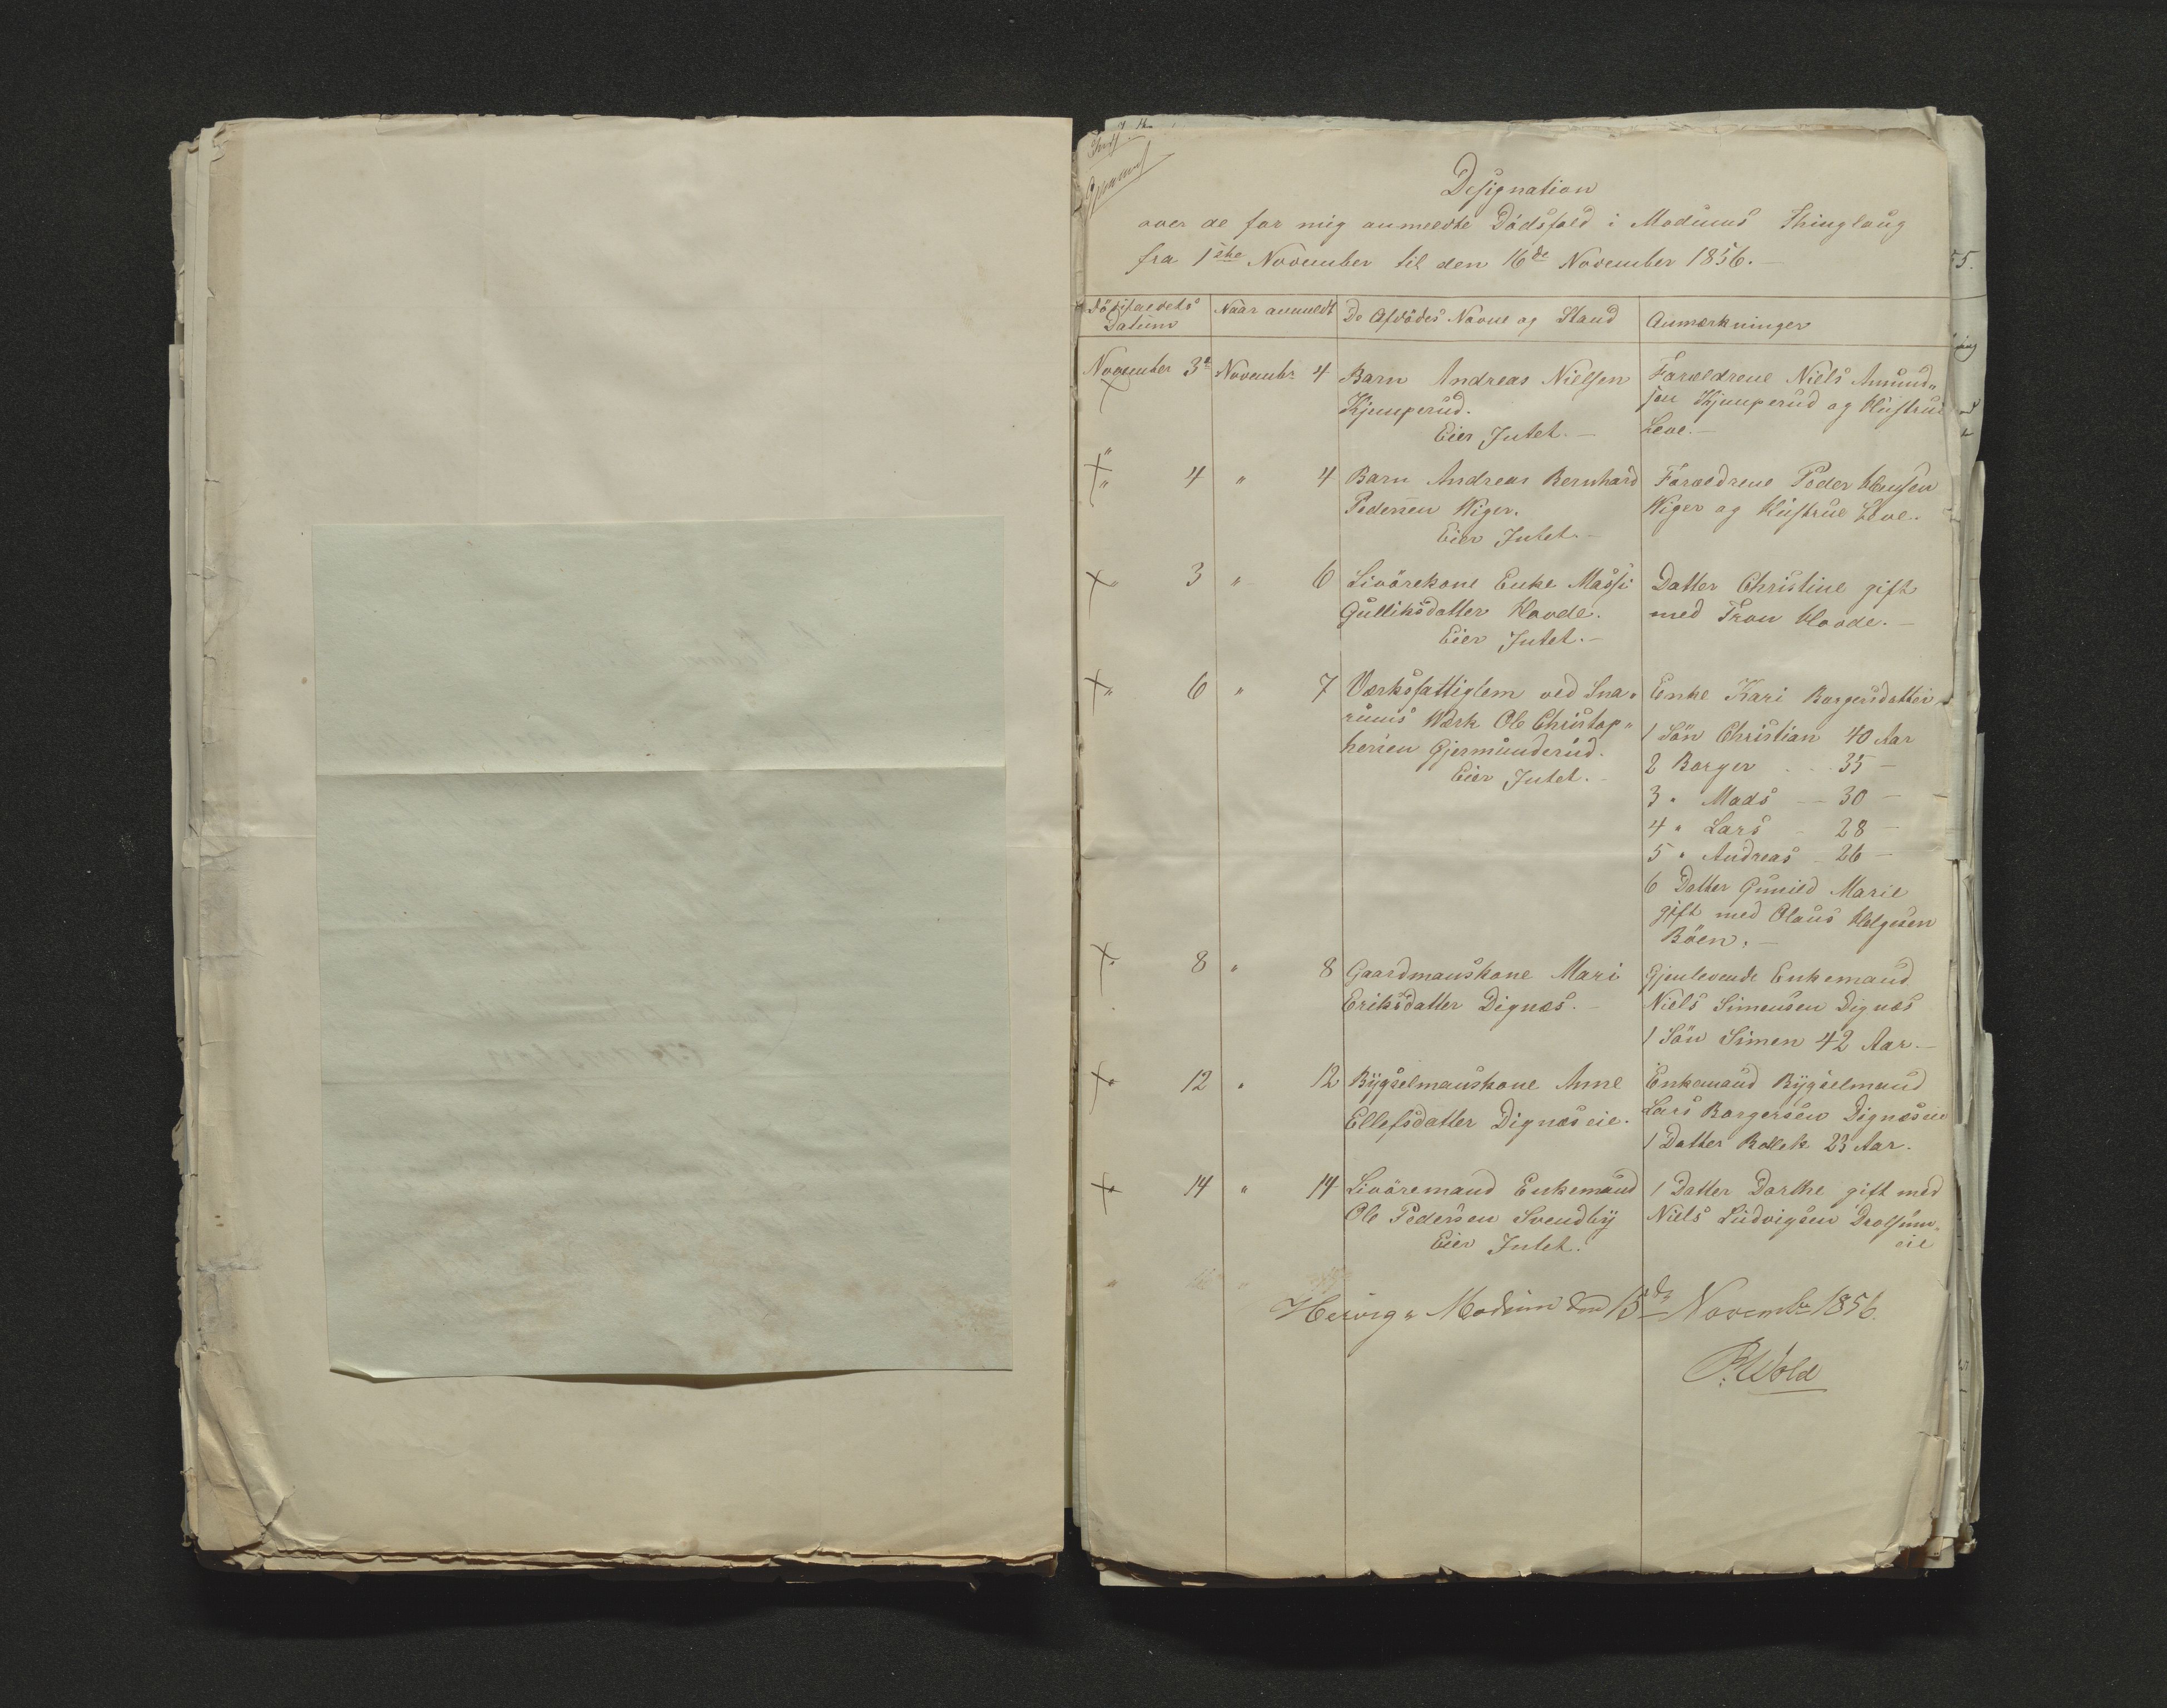 Designation
over de for mig anmeldte Dödsfald i Modums Thinglaug
fra 1ste November til den 16de November 1856.
Dödsfaldets Datum
Naar anmeldt
De Afdödes Navne og Stand
Anmærkninger
November 3d Novembr 4 Barn Andreas Nielsen
Kjemperud.
Eier Intet.
Forældrene Niels Amund„
sen Kjemperud og Hustrue
Leve.
" 4 " 4 Barn Andreas Bernhard
Pedersen Wiger.
Eier Intet.
Forældrene Peder Hansen
Wiger og Hustrue Leve.
" 3 " 6 Livörekone Enke Massi
Gulliksdatter Hovde.
Eier Intet.
Datter Christine gift
med Tron Hovde.
" 6 " 7 Værksfattiglem ved Sna„
rums Værk Ole Christop„
hersen Gjermunderud.
Eier Intet.
Enke Kari Borgersdatter
1 Sön Christian 40 Aar
2 Borger 35 —
3 " Mads 30 —
4 " Lars 28 —
5 " Andreas 26 —
6 Datter Gunild Marie
gift med Olaus Helgesen
Böen.
" 8 " 8 Gaardmanskone Mari
Eriksdatter Dignæs.
Gjenlevende Enkemand
Niels Simensen Dignæs
1 Sön Simen 42 Aar.
" 12 " 12 Bÿgselmanskone Anne
Ellefsdatter Dignæseie.
Enkemand Bÿgselmand
Lars Borgersen Dignæseie
1 Datter 23 Aar.
" 14 " 14 Livöremand Enkemand
Ole Pedersen Svendbÿ
Eier Intet.
1 Datter Dorthe gift med
Niels Ludvigsen Drolsum„
eie
Modum den 15de Novembr 1856.
Wold